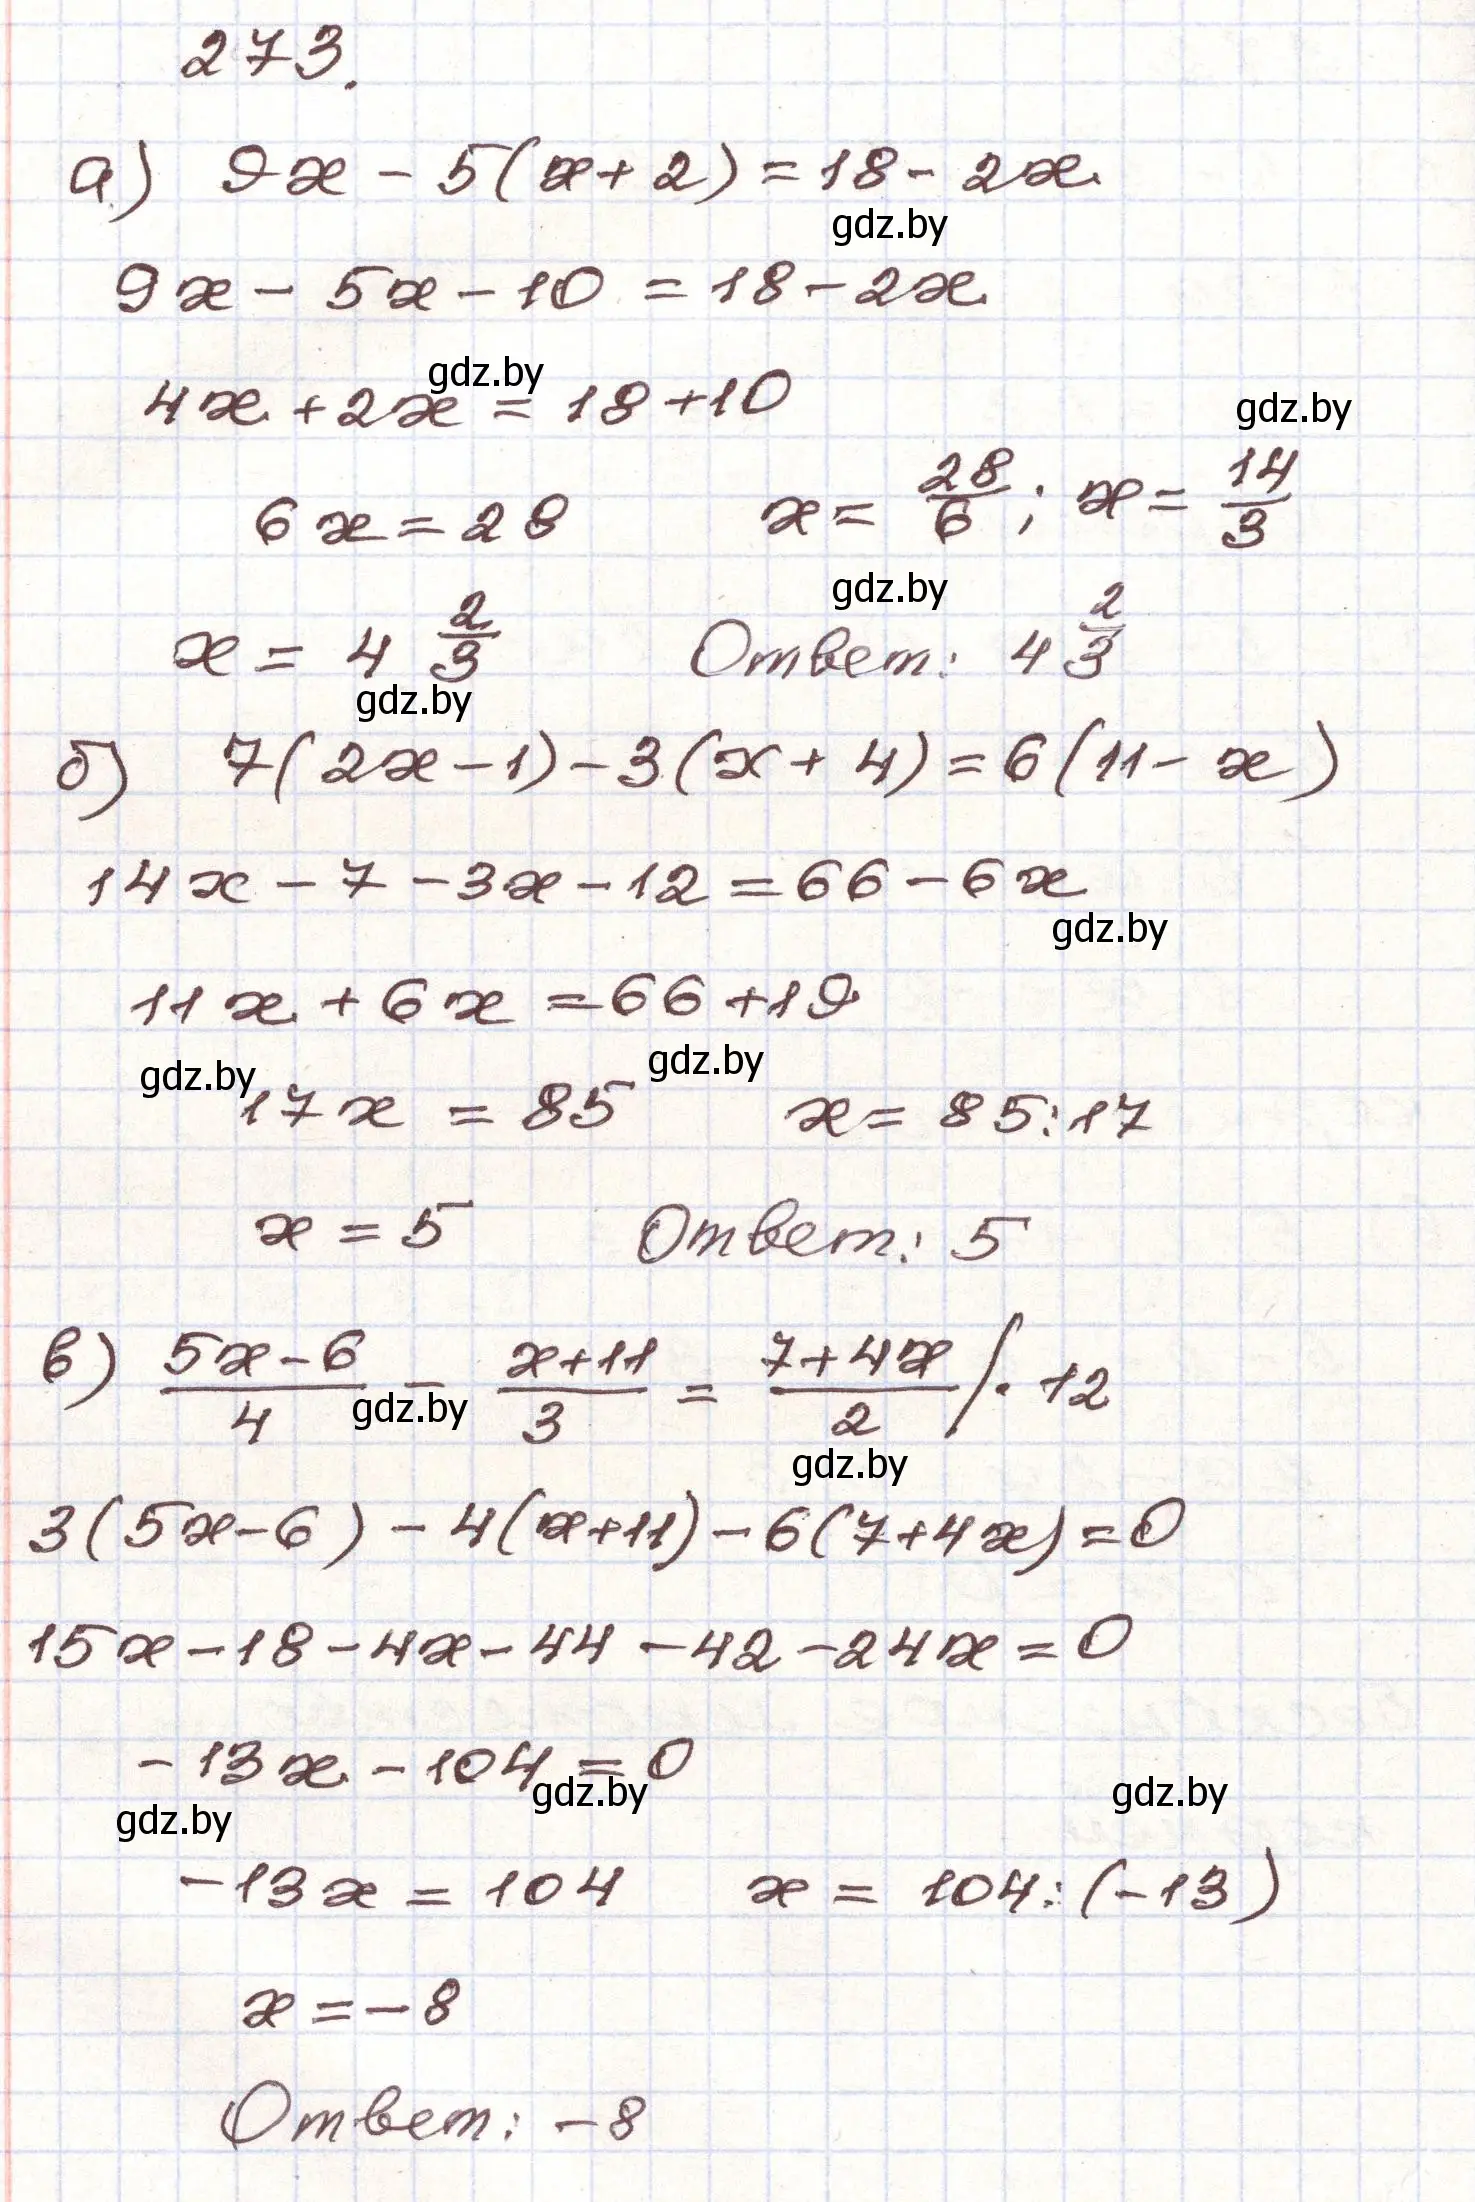 273.
а) 9x - 5(x+2) = 18 - 2x
gdz.by
9x - 5x - 10 = 18 - 2x
gdz.by
4x + 2x = 18 + 10
gdz.by
6x = 28 x = 28/6 ; x = 14/3
gdz.by
x = 4 2/3 Ответ: 4 2/3
gdz.by
б) 7(2x - 1) - 3(x + 4) = 6(11 - x)
14x - 7 - 3x - 12 = 66 - 6x
gdz.by
11x + 6x = 66 + 19
gdz.by gdz.by
17x = 85 x = 85 : 17
x = 5 Ответ: 5
в) (5x - 6)/4 - (x + 11)/3 = (7 + 4x)/2 | · 12
gdz.by
gdz.by
3(5x - 6) - 4(x + 11) - 6(7 + 4x) = 0
15x - 18 - 4x - 44 - 42 - 24x = 0
-13x - 104 = 0
gdz.by gdz.by gdz.by
-13x = 104 x = 104 : (-13)
x = -8
Ответ: -8